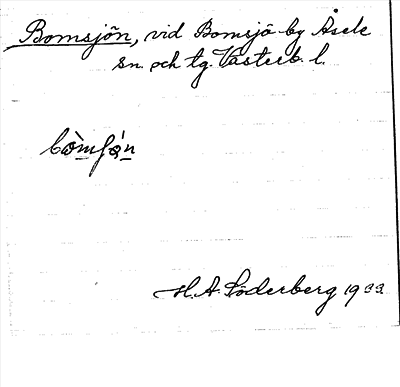 Bomsjön, vid Bomsjö by Åsele
sn. och tg. Västerb. l.
H. A. Söderberg 1933